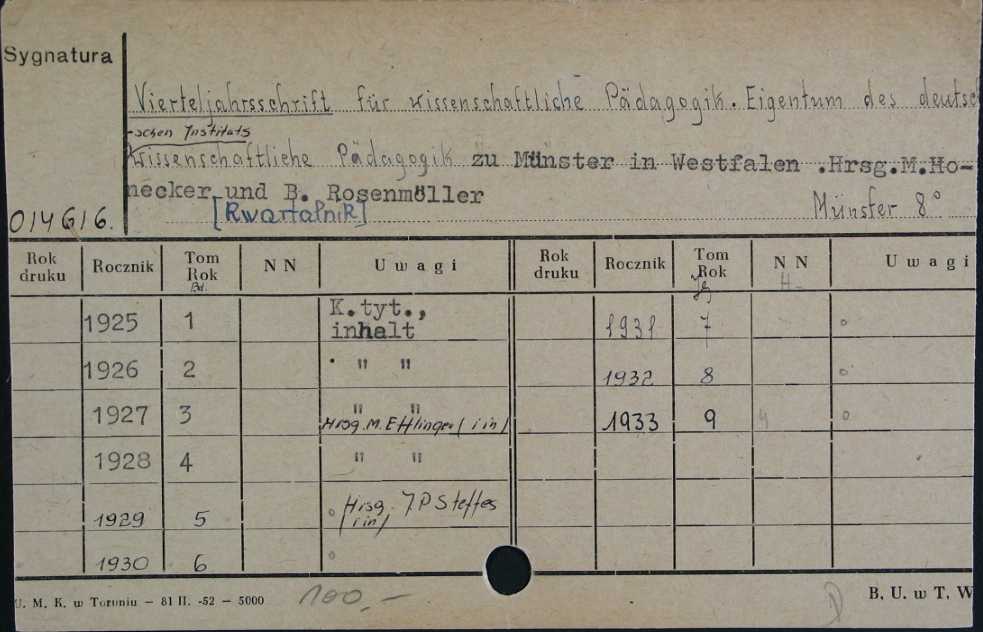 Sygnatura
Vierteljahrsschrift für wissenschaftliche Pädagogik. Eigentum des deutsc
-schen Instituts
Wissenschaftliche Pädagogik zu Münster in Westfalen .Hrsg.M.Ho-
necker und B. Rosenmöller
014616. [Kwartalnik] Münster 8°
Rok druku Rocznik Tom Rok Bd. NN Uwagi Rok druku Rocznik Tom Rok Jg NN H- Uwagi
1925 1 K.tyt., inhalt 1931 7 °
1926 2 " " 1932 8 °
1927 3 " " Hrsg. M. Ettlinger (i in) 1933 9 4 °
1928 4 " "
1929 5 ° Hrsg. J.P Steffes (i in)
1930 6 °
U. M. K. w Toruniu – 81 II. -52 – 5000 100,- B. U. w T. W